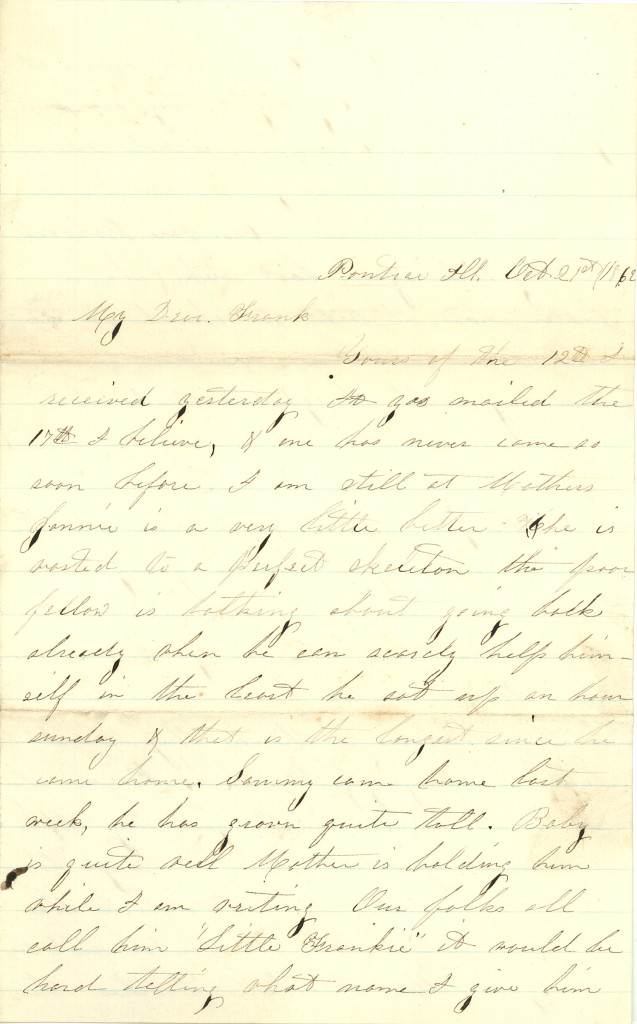 Pontiac Ill. Oct. 21st /1862
My Dear Frank
Yours of the 12th I
received yesterday It was mailed the
17th I believe, & one has never come so
soon before I am still at Mothers
is a very little better he is
wasted to a perfect skeleton the poor
fellow is talking about going back
already when he can scarcely help him-
self in the least he sat up an hour
sunday & that is the longest since he
came home. Sammy came home last
week, he has grown quite tall. Baby
is quite well Mother is holding him
while I am writing Our folks all
call him "Little Frankie" it would be
hard telling what name I give him